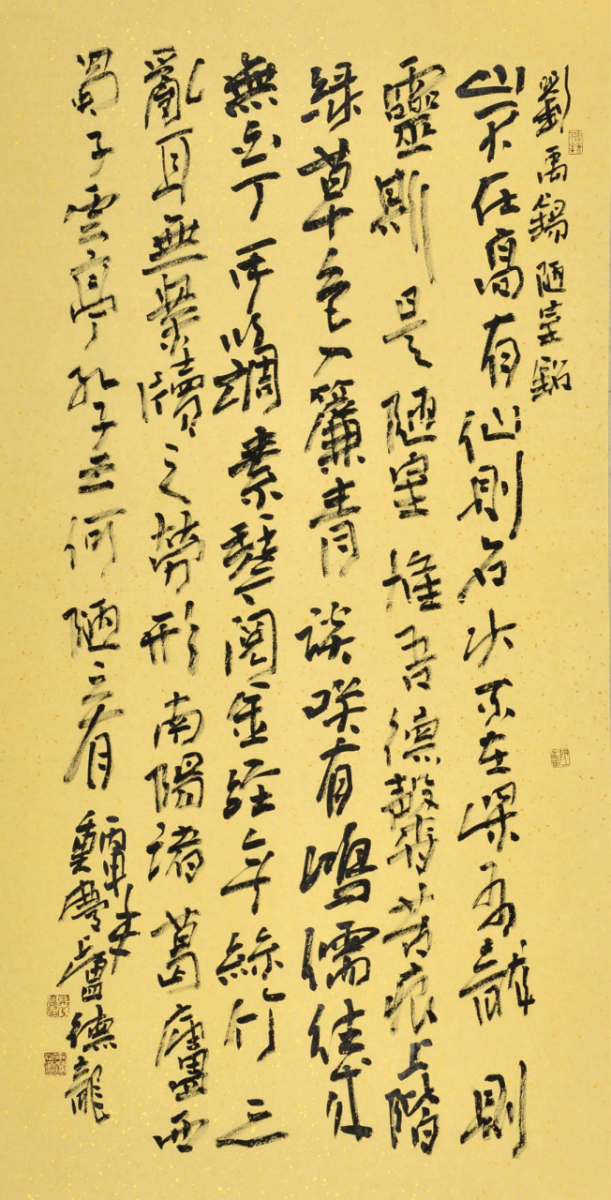 劉禹錫陋室銘
山不在高有仙則名水不在深有龍則
靈斯是陋室惟吾德馨苔痕上階
緑草色入簾青談咲有鴻儒往來
無白丁可以調素琴閱金經无絲竹之
亂耳無案牘之勞形南陽諸葛廬西
蜀子雲亭孔子云何陋之有
德龍